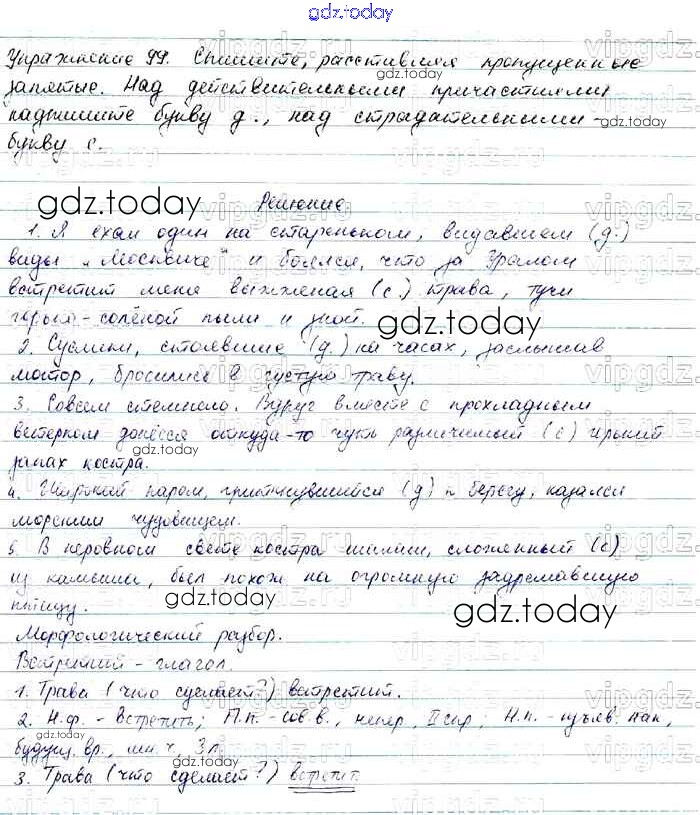 gdz.today
Упражнение 99. Спишите, расставляя пропущенные
запятые. Над действительными причастиями
надпишите букву д., над страдательными -
букву с.
Решение.
1. Я ехал один на стареньком, видавшем (д.)
виды „Москвиче" и боялся, что за Уралом
встретит меня выжженая (с.) трава, тучи
горько-солёной пыли и зной.
2. Суслики, стоявшие (д.) на часах, заслышав
мотор, бросились в густую траву.
3. Совсем стемнело. Вдруг вместе с прохладным
ветерком донёсся откуда-то чуть различимый (с) горький
запах костра.
4. Широкий паром, приткнувшийся (д) к берегу, казался
морским чудовищем.
5. В неровном свете костра шалаш, сложенный (с)
из камыша, был похож на огромную задремавшую
птицу.
Морфологический разбор.
Встретит - глагол.
1. Трава (что сделает?) встретит.
2. Н.ф. - встретить; П.п. - сов.в., непер, II спр; Н.п. - изъяв. нак,
будущ. вр., мн.ч, 3л.
3. Трава (что сделает?) встретит
gdz.today
gdz.today
gdz.today
gdz.today
gdz.today
gdz.today
gdz.today
gdz.today
gdz.today
gdz.today